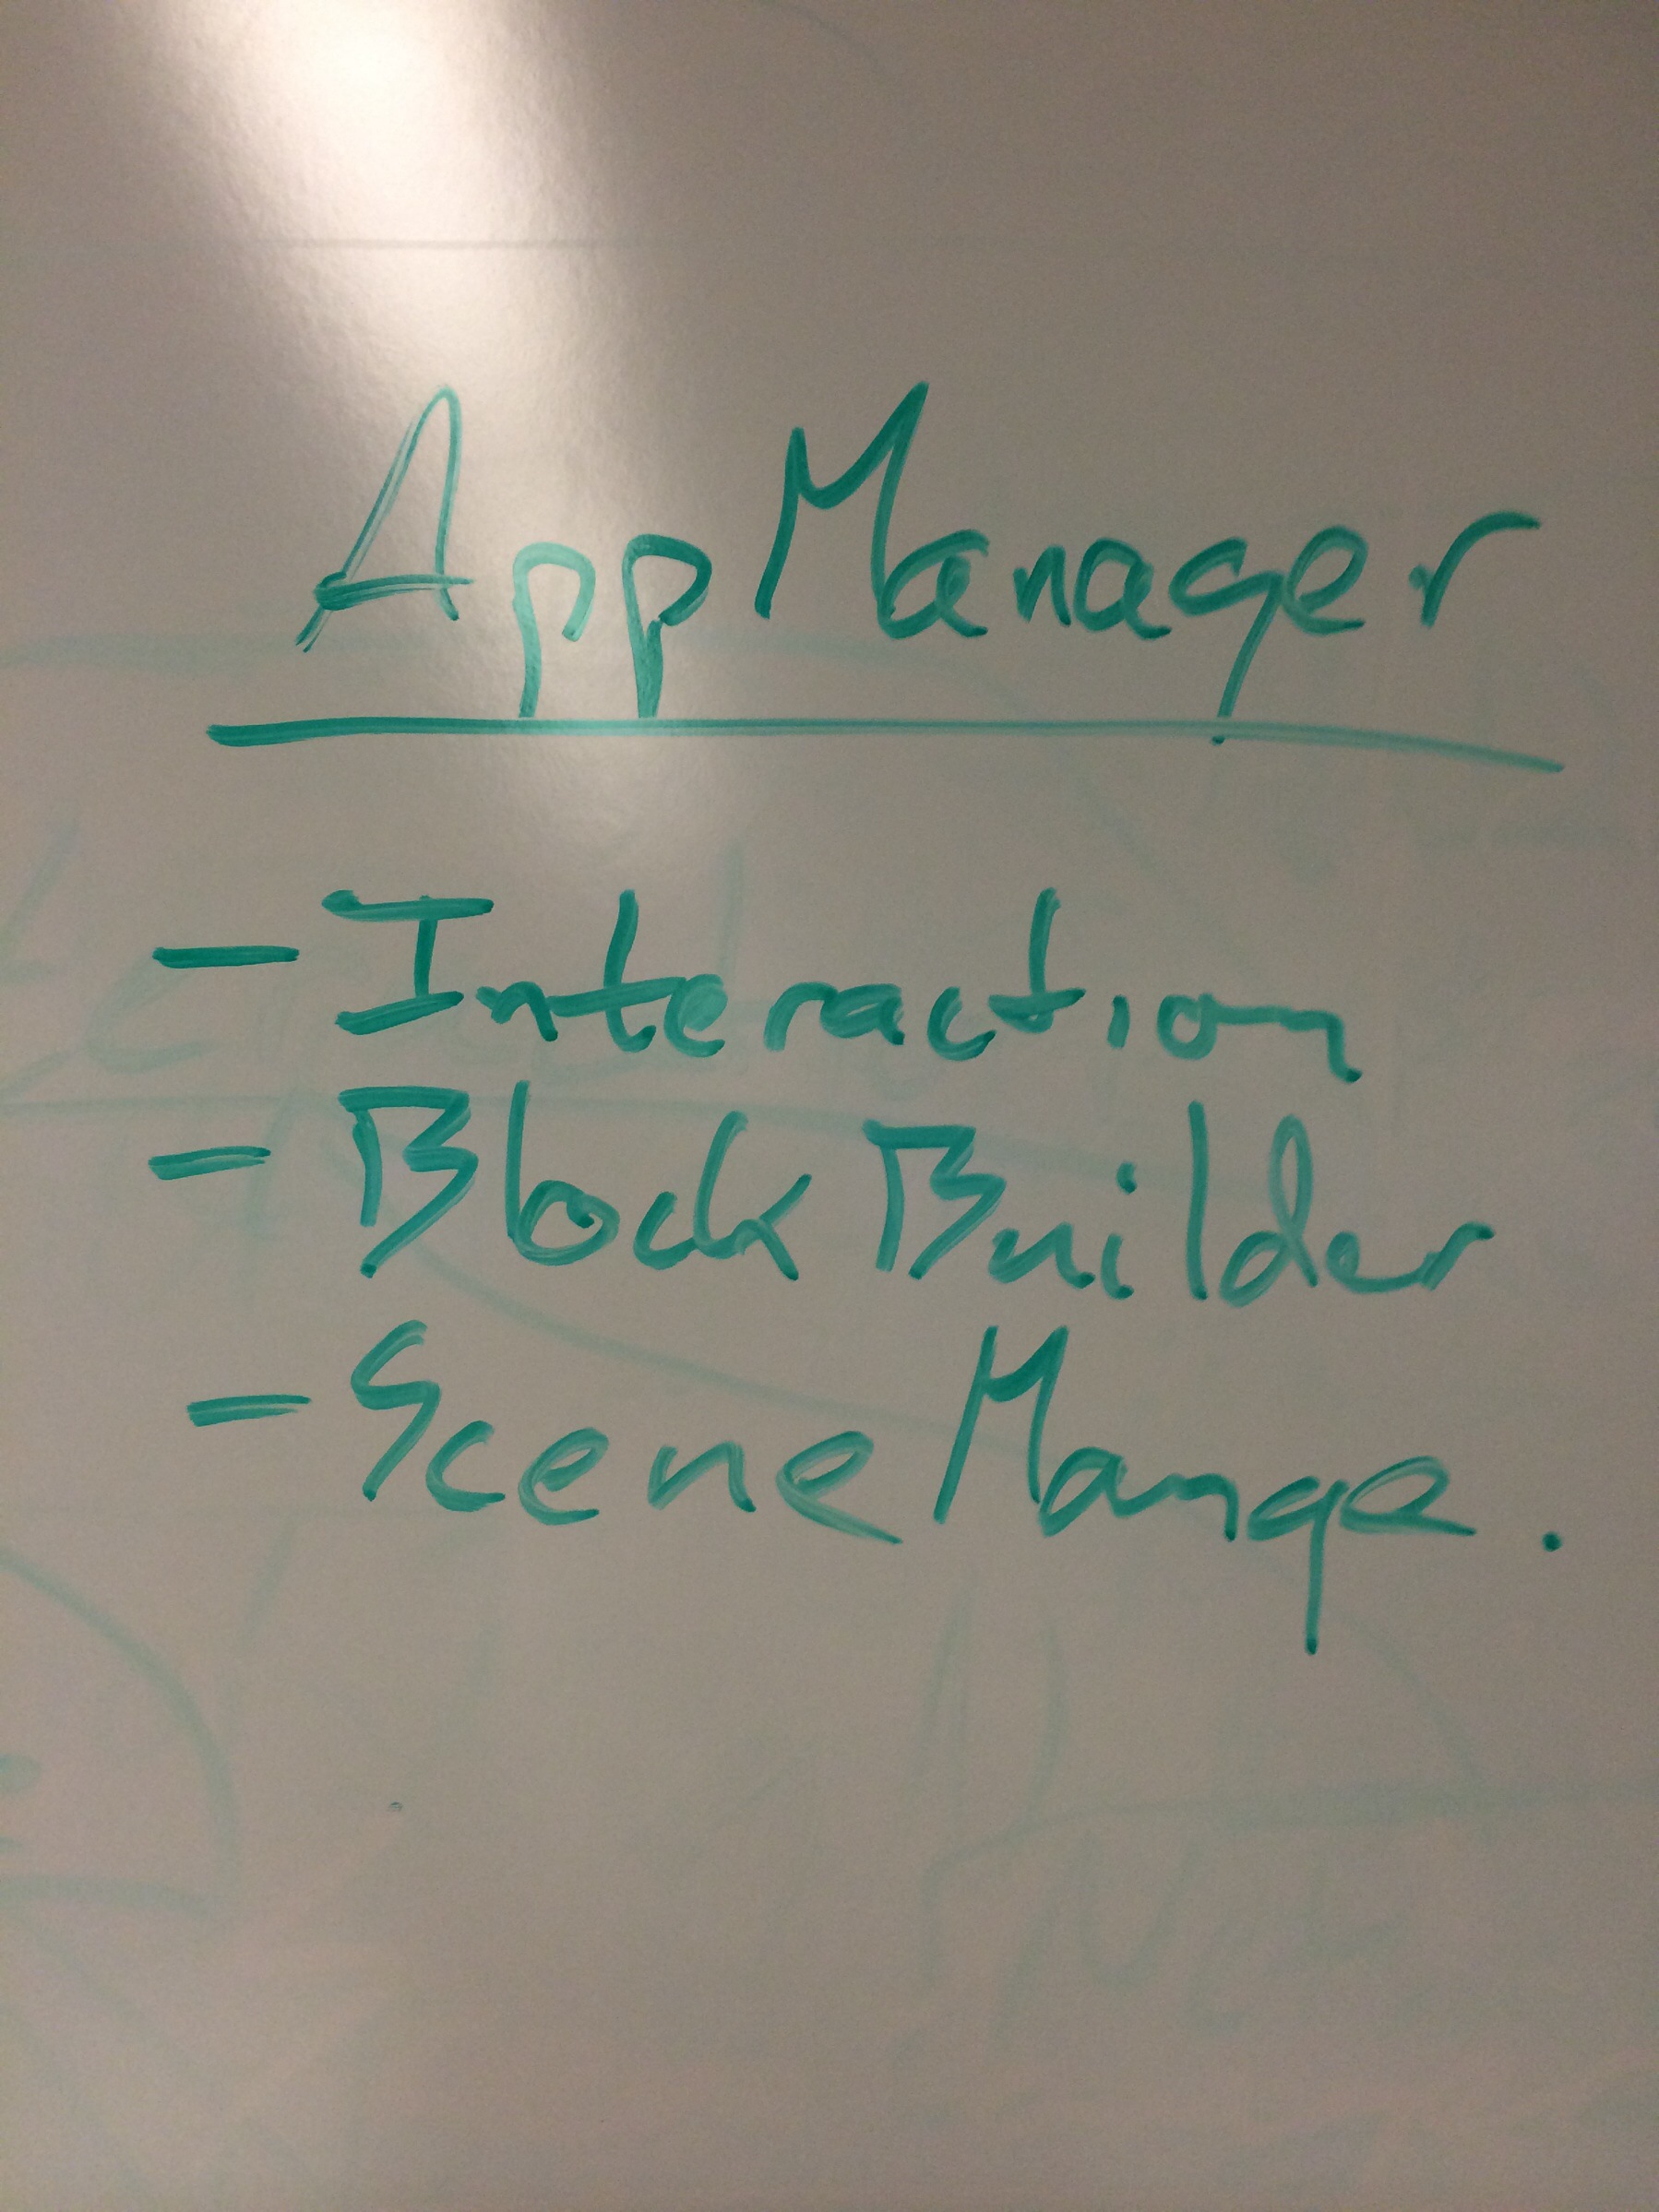 AppManager
- Interaction
- BlockBuilder
- SceneMange.